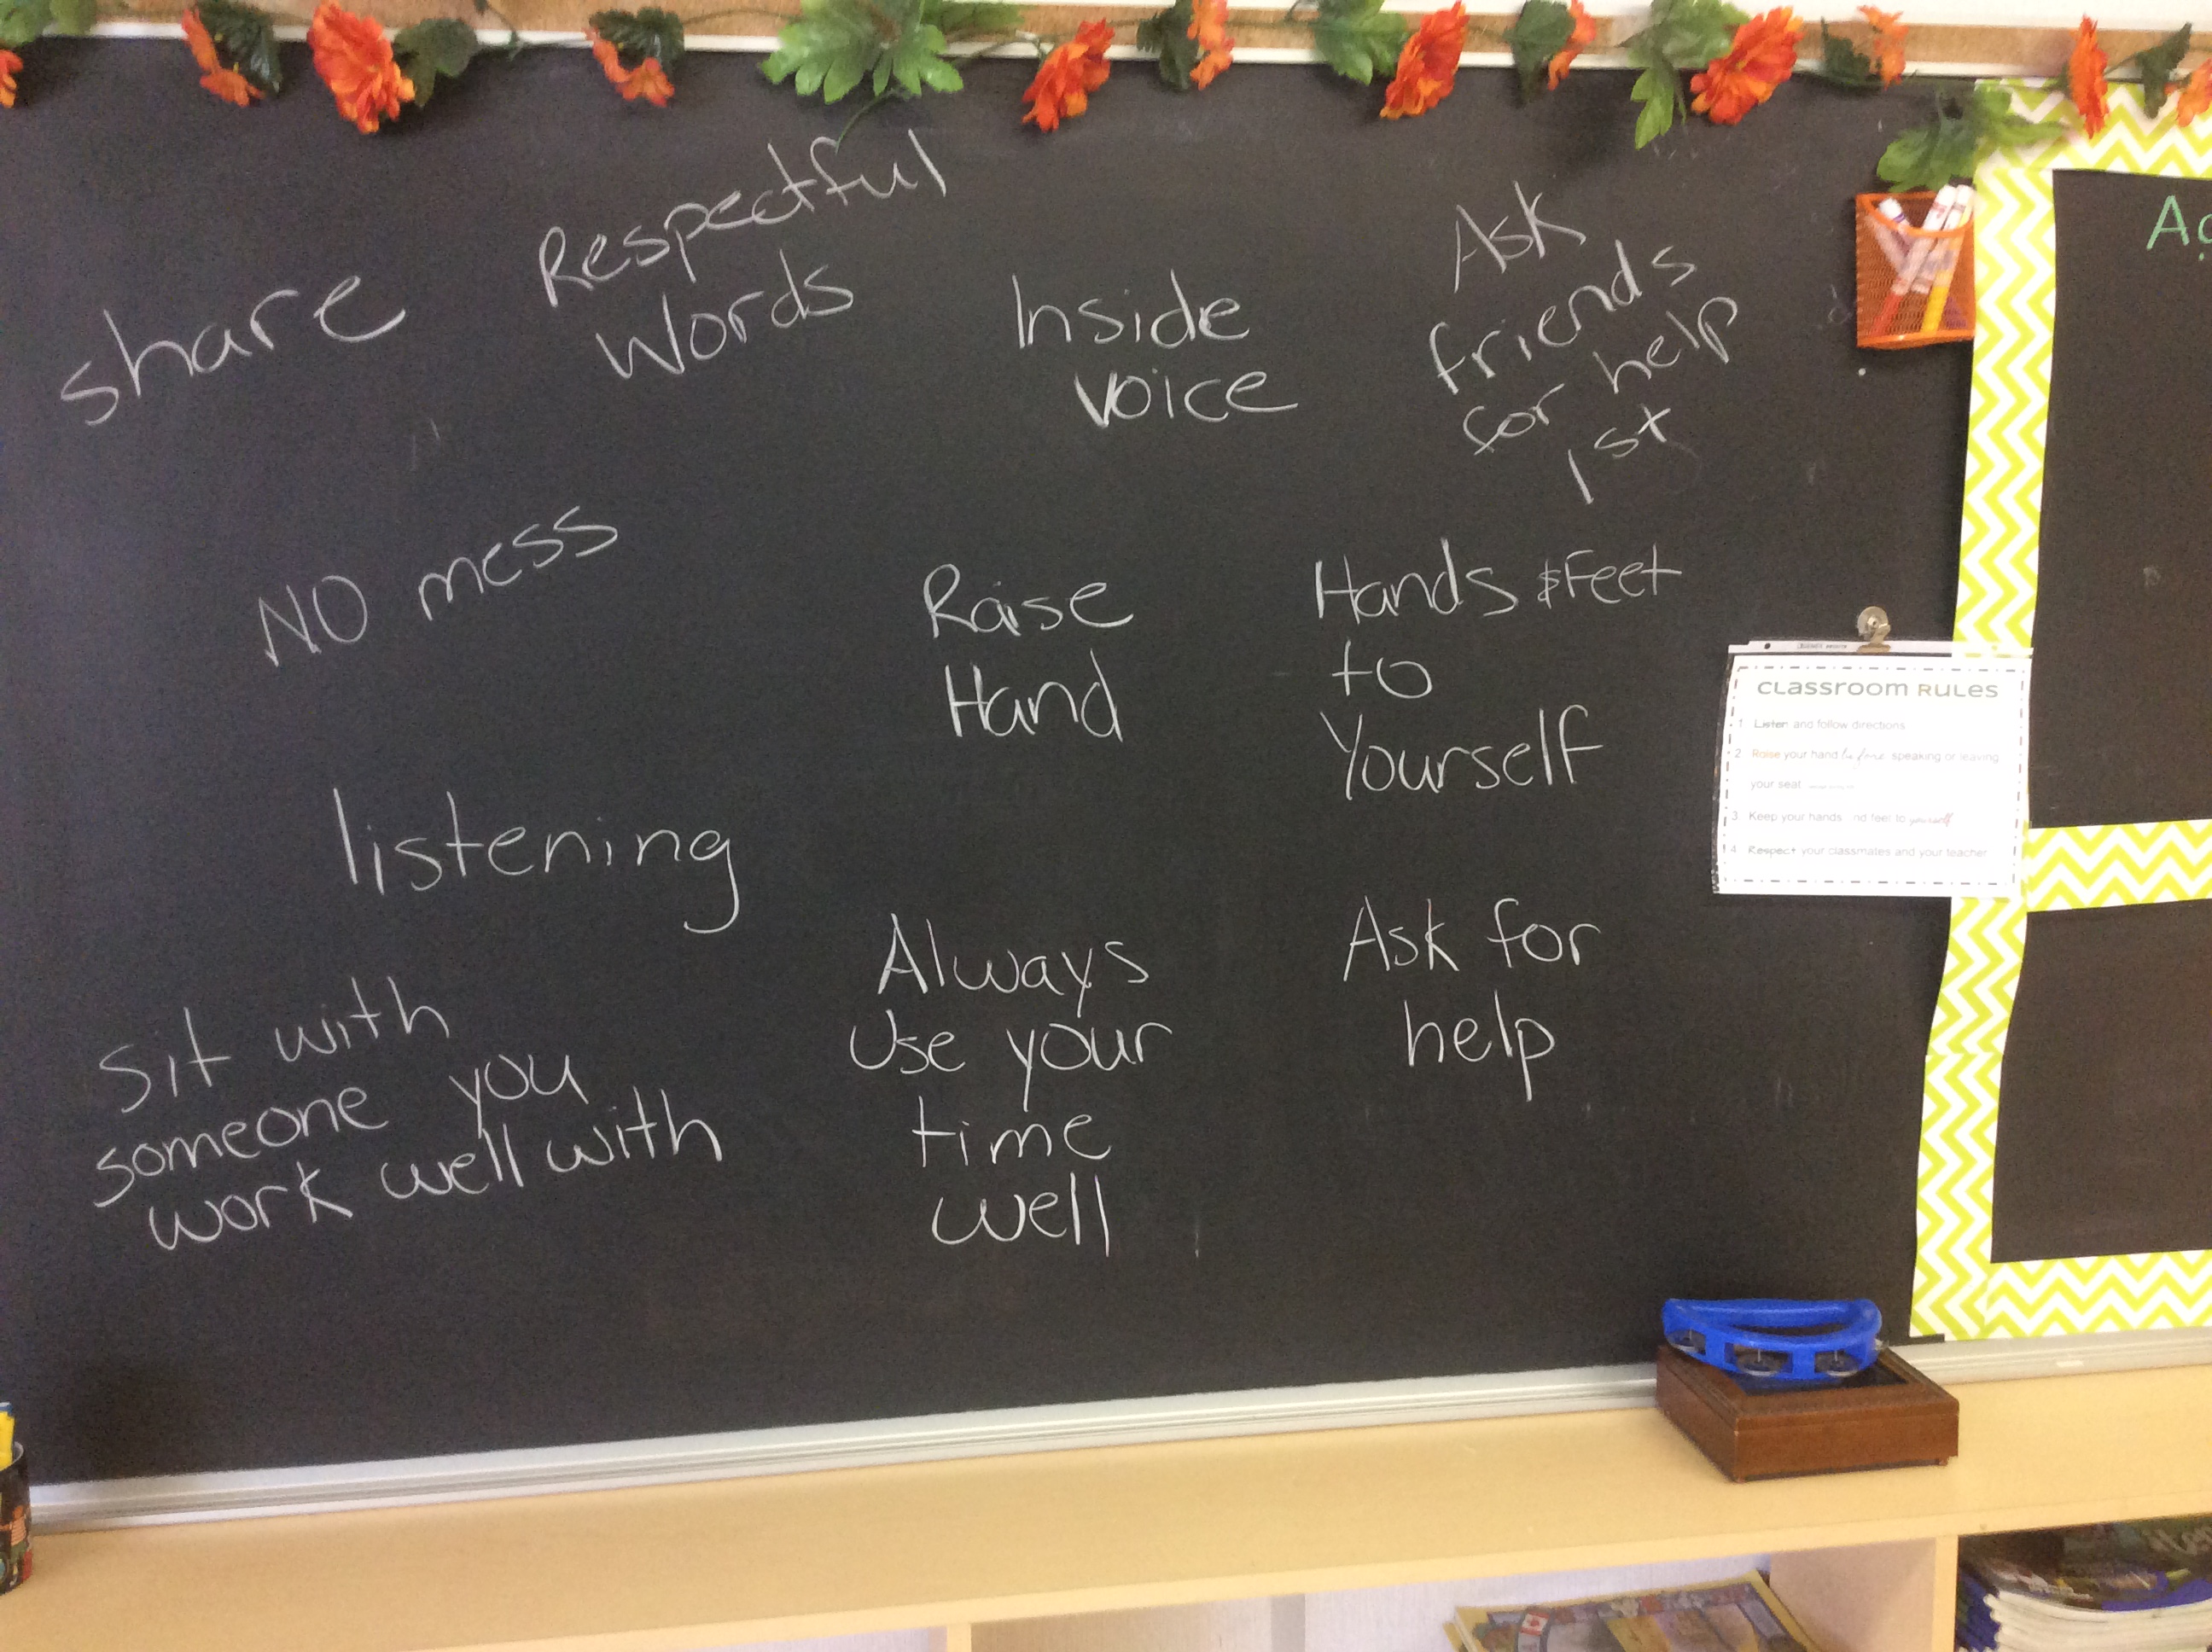 share
Respectful
Words
Inside
voice
Ask
friends
for help
1st
NO mess
Raise
Hand
Hands & Feet
to
Yourself
listening
Always
Use your
time
well
Ask for
help
sit with
someone you
work well with
CLassroom RULes
1 Listen and follow directions
2 Raise your hand before speaking or leaving
your seat
3 Keep your hands nd feet to yourself
4 Respect your classmates and your teacher